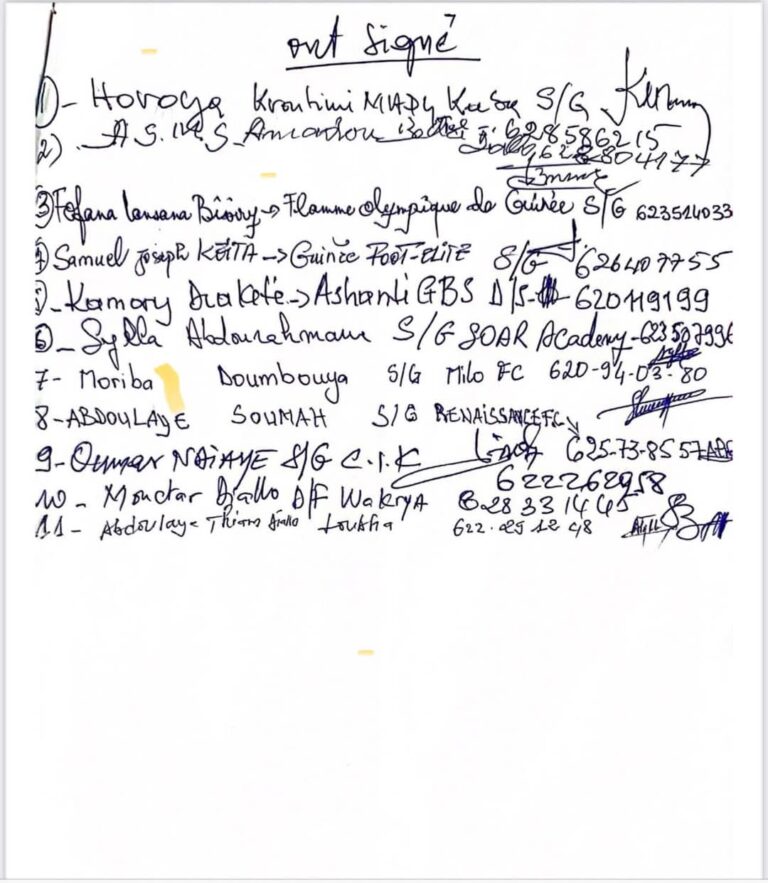 ont signé
1) - Horoya S/G
628586215
2) - A S. M. S Amadou 628804177
3) Fofana Lansana Bissiry → Flamme Olympique de Guinée S/G 623514033
4) Samuel Joseph KEITA → Guinée FOOT-ELITE S/G 626407755
5) - Kamory → Ashanti GBS D/S - 620119199
6) - Sylla Abdourahmane S/G SOAR Academy - 62350799
7- Moriba Doumbouya S/G Milo FC 620-94-03-80
8- ABDOULAYE SOUMAH S/G RENAISSANCE FC
9- Oumar NDIAYE S/G C.I.K 625-73-85 57
622262958
10 - Moctar Diallo D/F Wakrya 628331445
11 - Abdoulaye Diallo 622.25 12 48